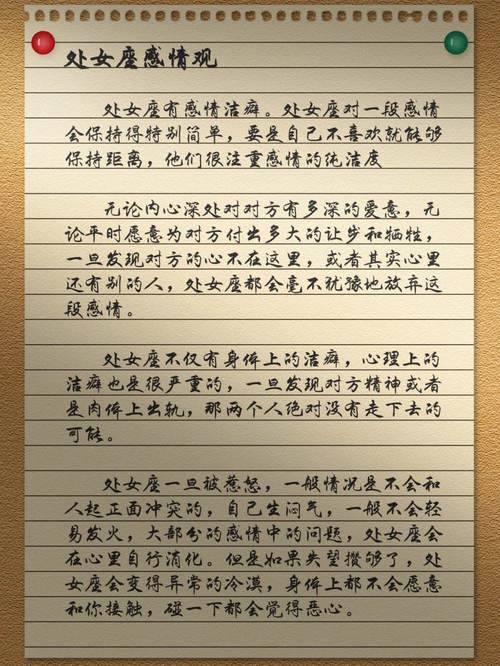 处女座感情观
处女座有感情洁癖。处女座对一段感情
会保持得特别简单，要是自己不喜欢就能够
保持距离，他们很注重感情的纯洁度
无论内心深处对对方有多深的爱意，无
论平时愿意为对方付出多大的让步和牺牲，
一旦发现对方的心不在这里，或者其实心里
还有别的人，处女座都会毫不犹豫地放弃这
段感情。
处女座不仅有身体上的洁癖，心理上的
洁癖也是很严重的，一旦发现对方精神或者
是肉体上出轨，那两个人绝对没有走下去的
可能。
处女座一旦被惹怒，一般情况是不会和
人起正面冲突的，自己生闷气，一般不会轻
易发火，大部分的感情中的问题，处女座会
在心里自行消化。但是如果失望攒够了，处
女座会变得异常的冷漠，身体上都不会愿意
和你接触，碰一下都会觉得恶心。